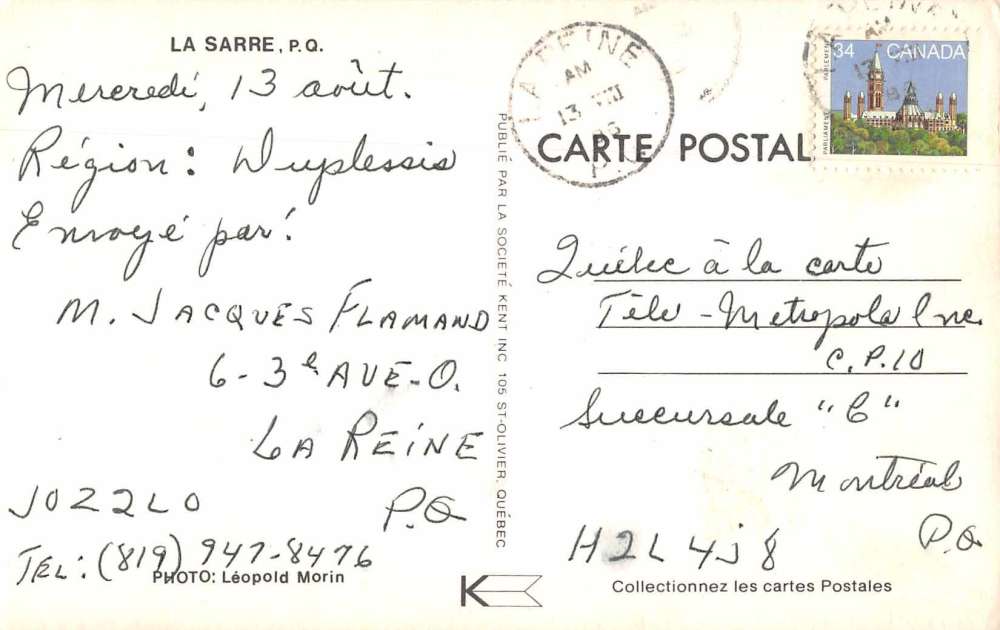 LA SARRE, P.Q.
Mercredi, 13 août.
Région: Duplessis
Envoyé par:
M. JACQUES FLAMAND
6-3e AVE-O.
LA REINE
P.Q
J0Z2L0
TÉL: (819) 947-8476
PHOTO: Léopold Morin
PUBLIÉ PAR LA SOCIETÉ KENT INC 105 ST-OLIVIER, QUÉBEC
LA REINE
AM
13 VIII
86
P.Q.
34 CANADA
PARLIAMENT PARLEMENT
CARTE POSTALE
Québec à la carte
Télé-Metropole Inc.
C.P.10
Succursale "C"
Montréal
P.Q.
H2L 4J8
K
Collectionnez les cartes Postales